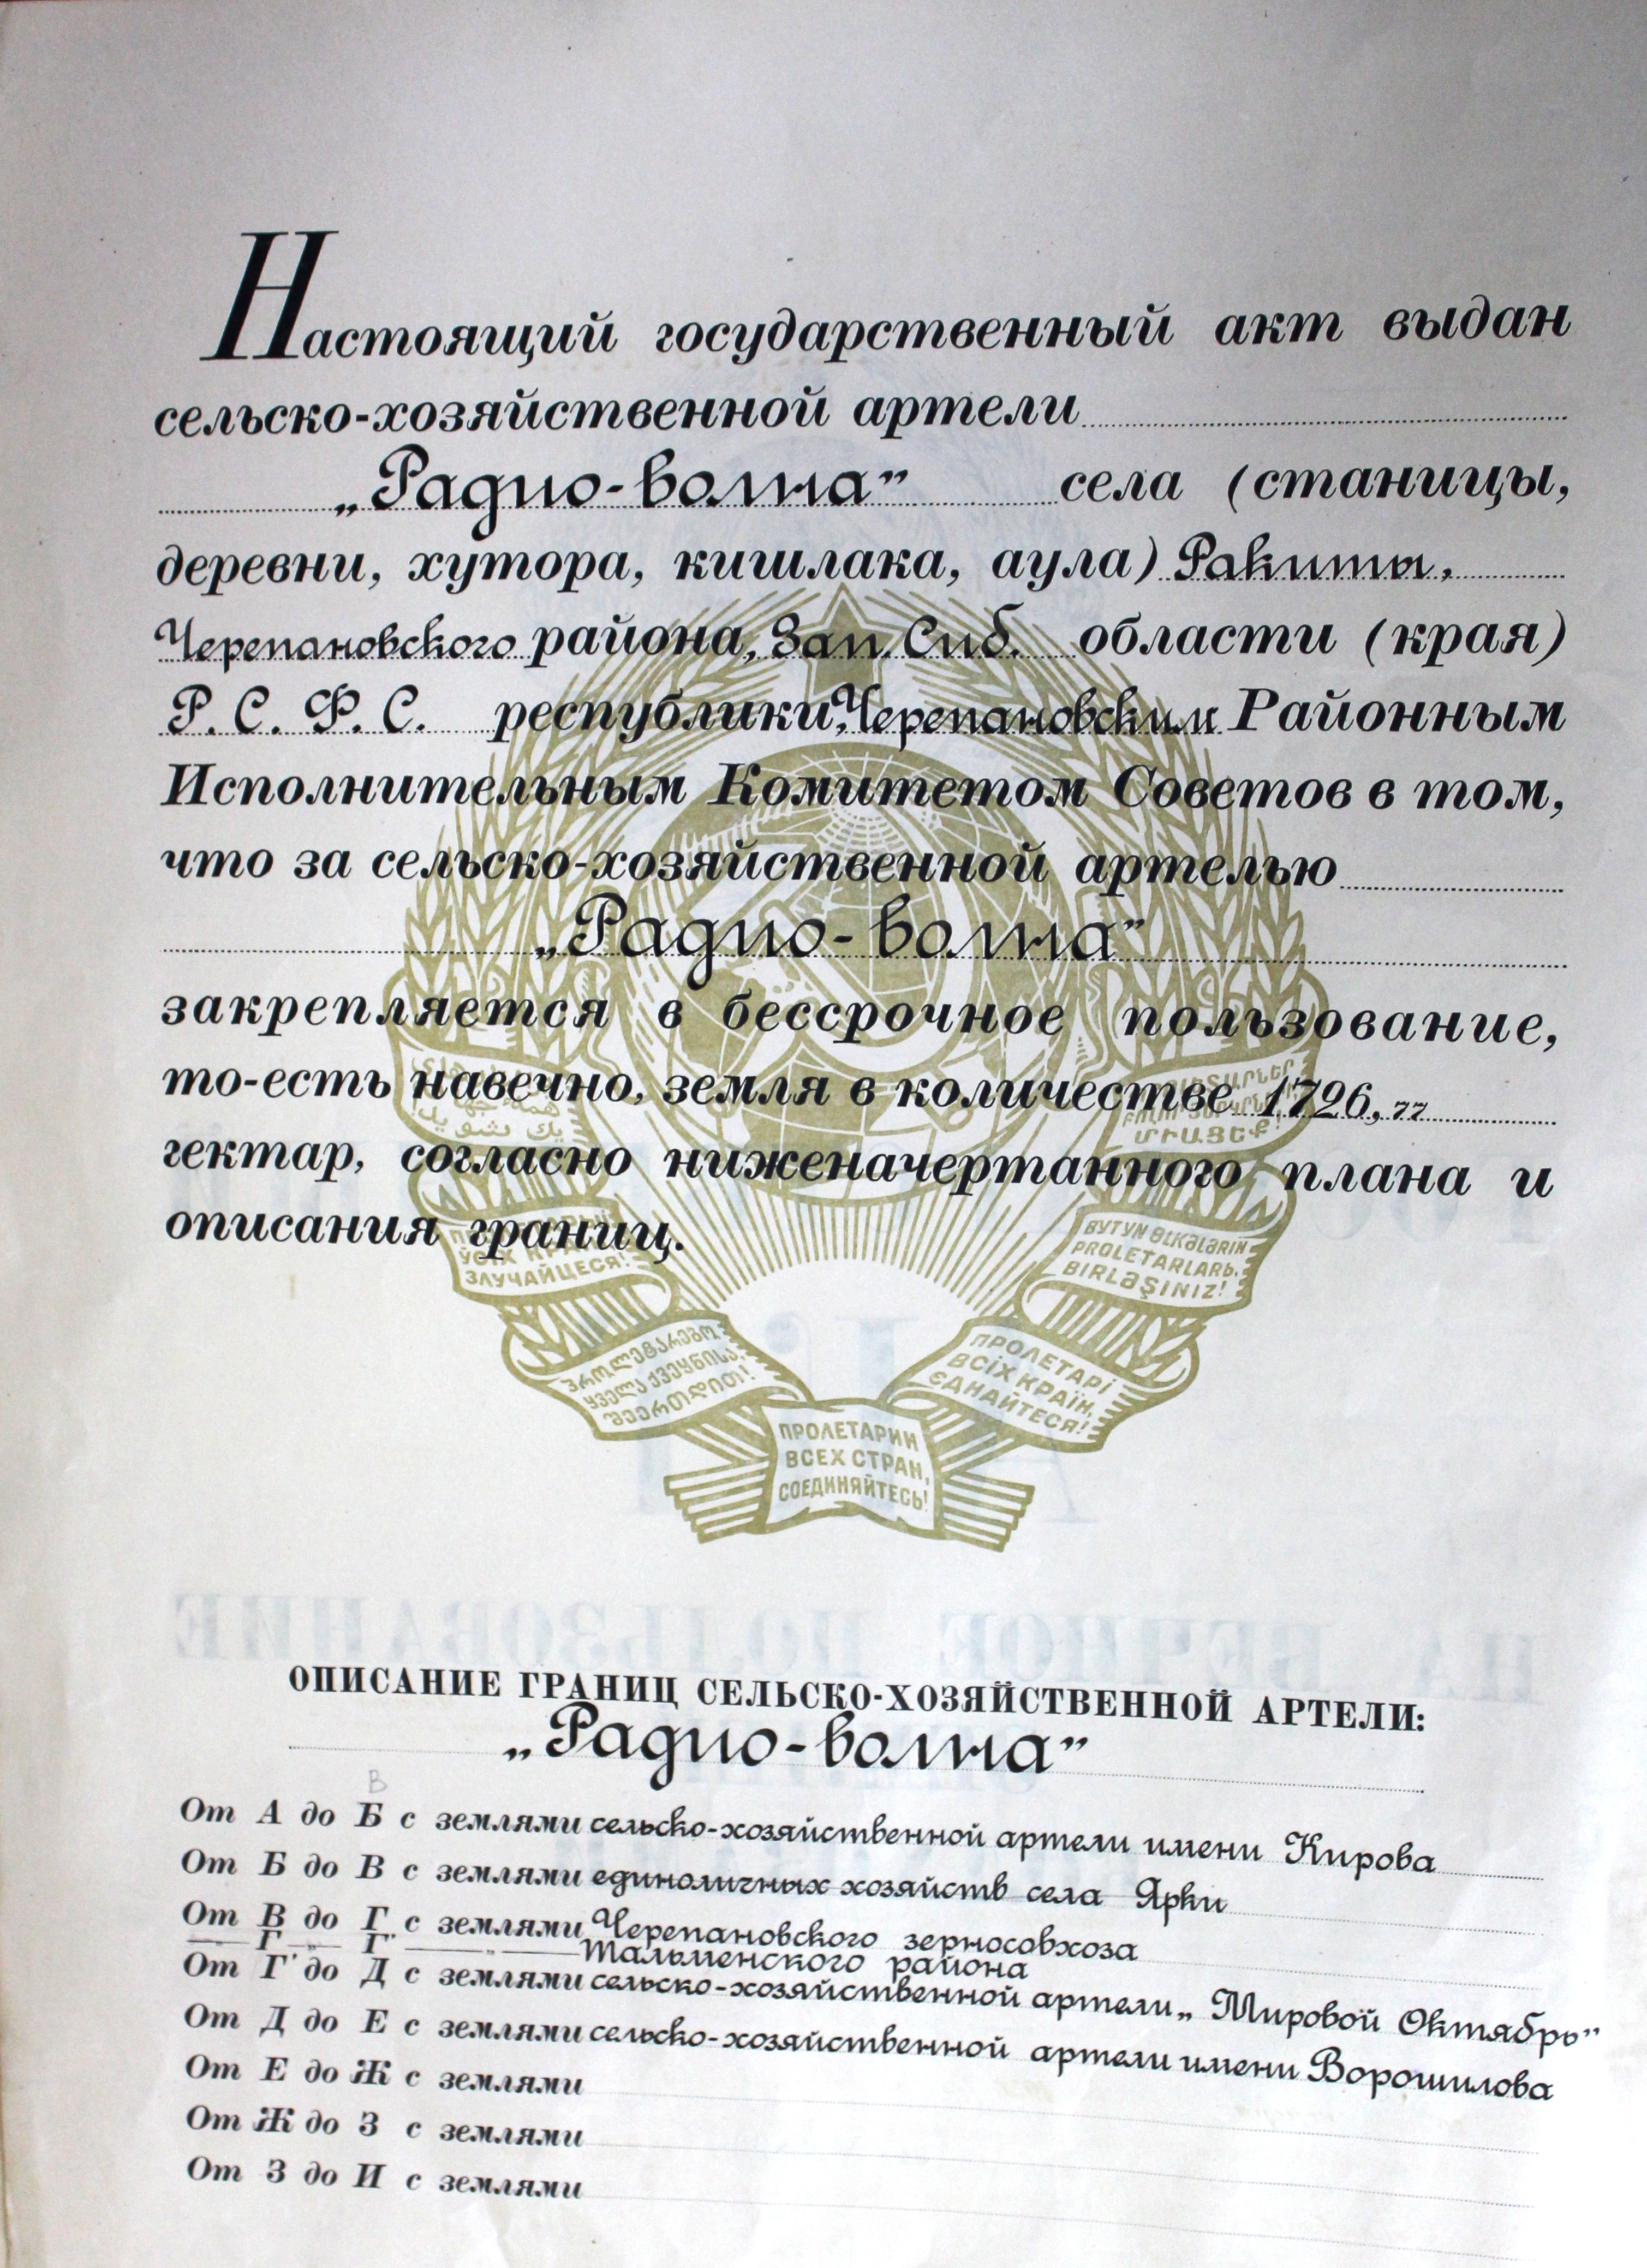 Настоящий государственный акт выдан
сельско-хозяйственной артели
„Радио-волна” села (станицы,
деревни, хутора, кишлака, аула) Ракиты,
Черепановского района, Зап. Сиб. области (края)
Р. С. Ф. С. республики, Черепановским Районным
Исполнительным Комитетом Советов в том,
что за сельско-хозяйственной артелью
„Радио-волна”
закрепляется в бессрочное пользование,
то-есть навечно, земля в количестве 1726,77
гектар, согласно ниженачертанного плана и
описания границ.
ЎСІХ КРАІН
ЗЛУЧАЙЦЕСЯ!
BYTYN ƏLKƏLƏRIN
PROLETARLARЬ,
BIRLƏŞINIZ!
ՄԻԱՑԵՔ!
პროლეტარებო
ყველა ქვეყნისა,
შეერთდით!
ПРОЛЕТАРІ
ВСІХ КРАЇН,
ЄДНАЙТЕСЯ!
ПРОЛЕТАРИИ
ВСЕХ СТРАН,
СОЕДИНЯЙТЕСЬ!
ОПИСАНИЕ ГРАНИЦ СЕЛЬСКО-ХОЗЯЙСТВЕННОЙ АРТЕЛИ:
„Радио-волна”
В
От А до Б с землями сельско-хозяйственной артели имени Кирова
От Б до В с землями единоличных хозяйств села Ярки
От В до Г с землями Черепановского зерносовхоза
— Г — „ — Г' — „ — Тальменского района
От Г' до Д с землями сельско-хозяйственной артели „Мировой Октябрь”
От Д до Е с землями сельско-хозяйственной артели имени Ворошилова
От Е до Ж с землями
От Ж до З с землями
От З до И с землями